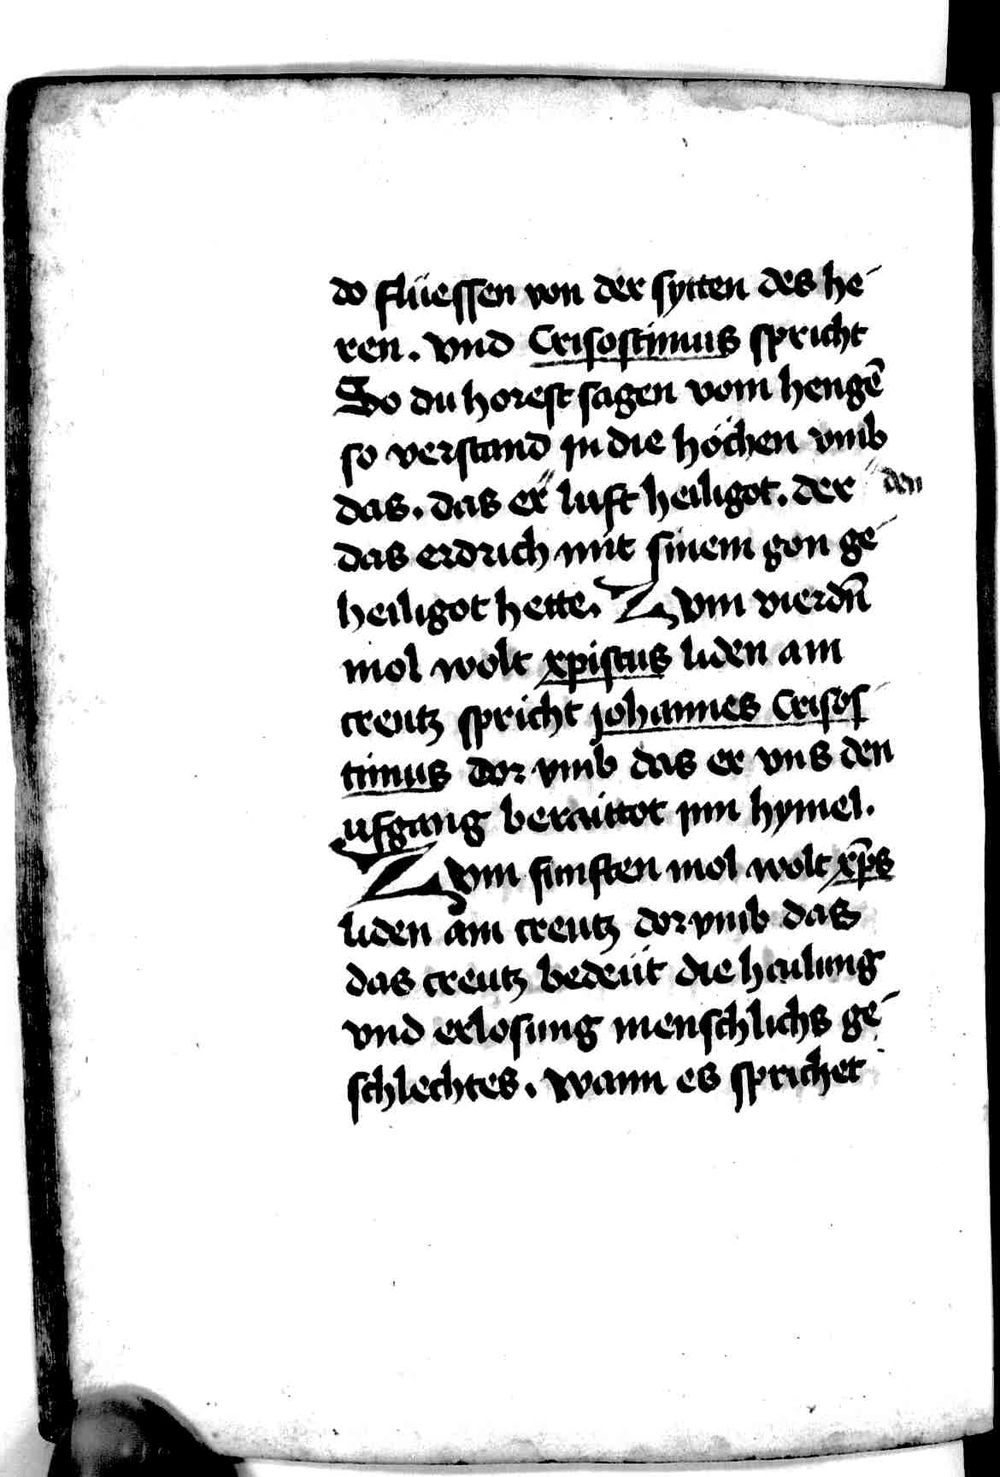 do flüessen von der sytten des he-
ren. vnd Crisostimus spricht
So du horest sagen vom hengē
so verstand jn die höchen vmb
das. das er" luft heiligot. der "den
das erdrich mit sinem gon ge-
heiligot hette. Zvm vierdn̄
mol wolt xpistus liden am
creutz spricht johannes Crisos-
timus dor vmb das er vns den
ufgang beraittot jnn hymel.
Zvm finften mol wolt xp̄s
liden am creutz dor vmb das
das creutz bedeüt die hailung
vnd erlosung menschlichs ge-
schlechtes. wann es sprichet